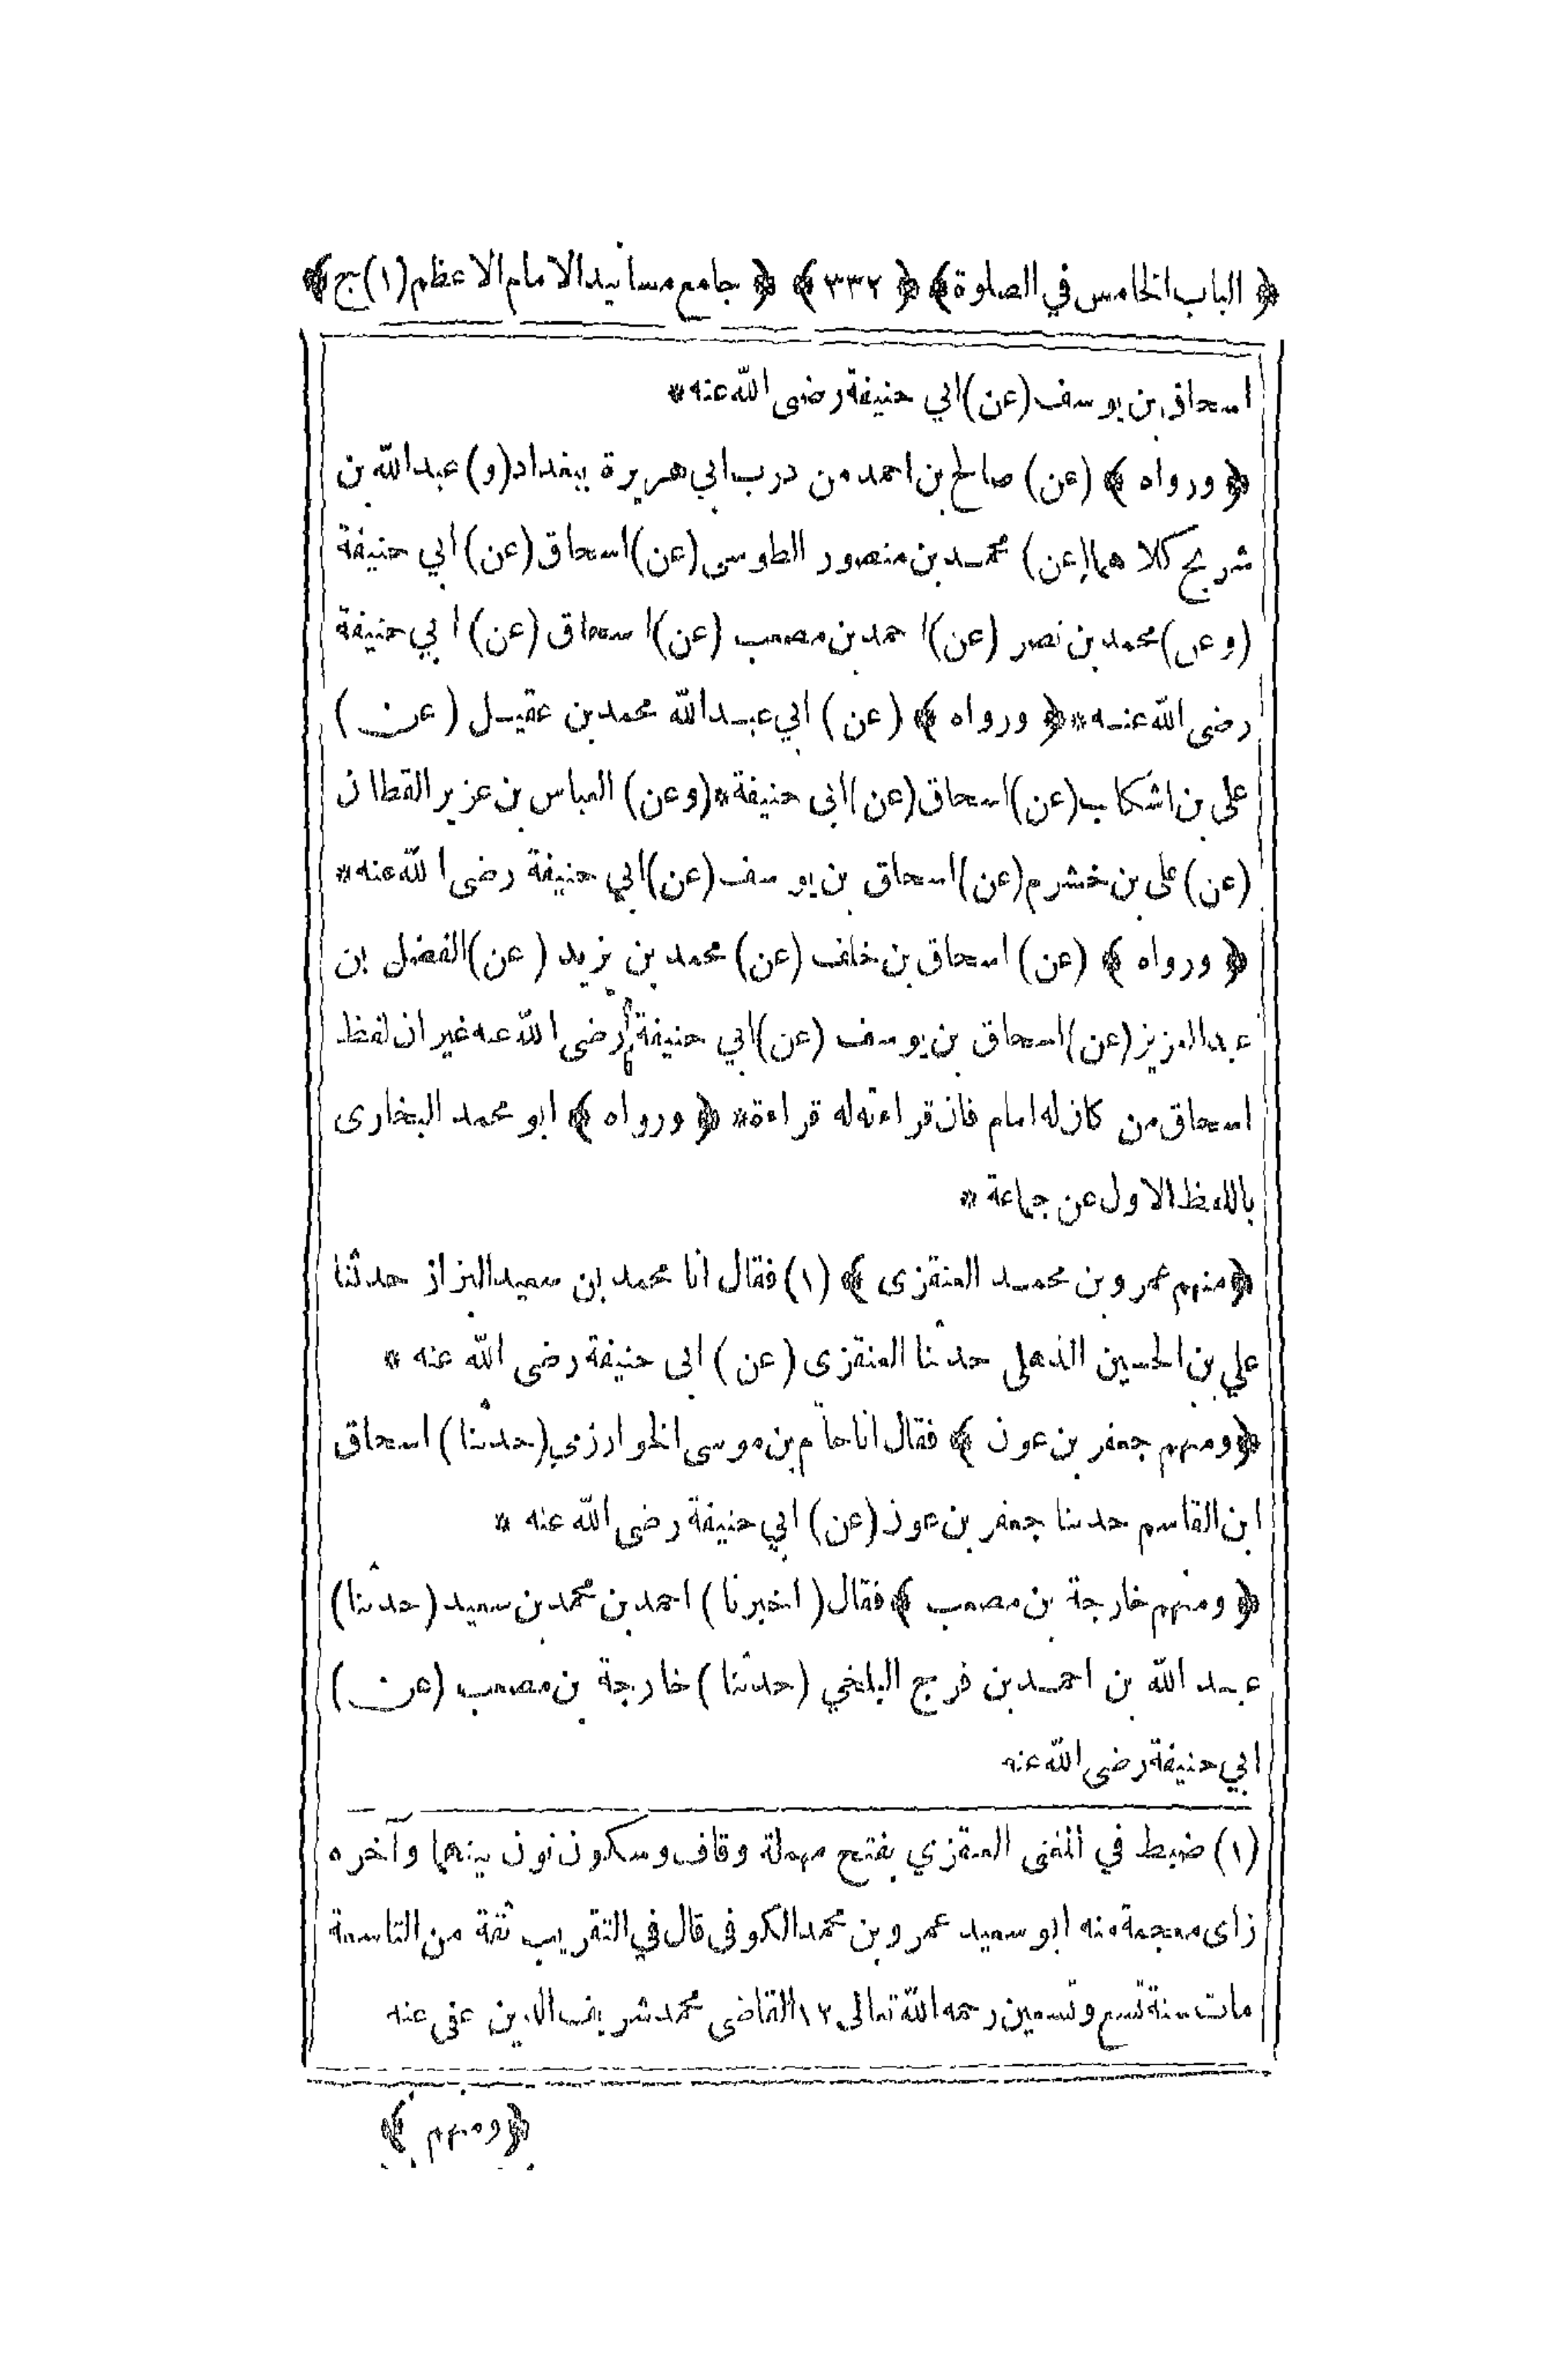 ﴿ الباب الخامس في الصلوة ﴾ ﴿ ٣٣٢ ﴾ ﴿ جامع مسانيد الامام الاعظم (١) ج ﴾
اسحاق بن يوسف (عن) ابي حنيفة رضى الله عنه *
﴿ ورواه ﴾ (عن) صالح بن احمد من درب ابي هريرة ببغداد (و) عبد الله بن
شريح كلاهما (عن) محمد بن منصور الطوسى (عن) اسحاق (عن) ابي حنيفة
(وعن) محمد بن نصر (عن) احمد بن مصعب (عن) اسحاق (عن) ابي حنيفة
رضى الله عنه * ﴿ ورواه ﴾ (عن) ابي عبد الله محمد بن عقيل (عن)
على بن اشكاب (عن) اسحاق (عن) ابى حنيفة * (وعن) العباس بن عزير القطان
(عن) على بن خشرم (عن) اسحاق بن يوسف (عن) ابي حنيفة رضى الله عنه *
﴿ ورواه ﴾ (عن) اسحاق بن خلف (عن) محمد بن يزيد (عن) الفضل بن
عبد العزيز (عن) اسحاق بن يوسف (عن) ابي حنيفة رضى الله عنه غير ان لفظ
اسحاق من كان له امام فان قراءته له قراءة * ﴿ ورواه ﴾ ابو محمد البخارى
باللفظ الاول عن جماعة *
﴿ منهم عمرو بن محمد العنقزى ﴾ (١) فقال انا محمد بن سعيد البزاز حدثنا
علي بن الحسين الذهلى حدثنا العنقزى (عن) ابى حنيفة رضى الله عنه *
﴿ ومنهم جعفر بن عون ﴾ فقال انا حاتم بن موسى الخوارزمي (حدثنا) اسحاق
ابن القاسم حدثنا جعفر بن عون (عن) ابي حنيفة رضى الله عنه *
﴿ ومنهم خارجة بن مصعب ﴾ فقال (اخبرنا) احمد بن محمد بن سعيد (حدثنا)
عبد الله بن احمد بن فرج البلخي (حدثنا) خارجة بن مصعب (عن)
ابي حنيفة رضى الله عنه
(١) ضبط في المغنى العنقزي بفتح مهملة وقاف وسكون نون بينهما وآخره
زاى معجمة منه ابو سعيد عمرو بن محمد الكوفى قال في التقريب ثقة من التاسعة
مات سنة تسع وتسعين رحمه الله تعالى ١٢ القاضى محمد شريف الدين عفى عنه
﴿ ومنهم ﴾